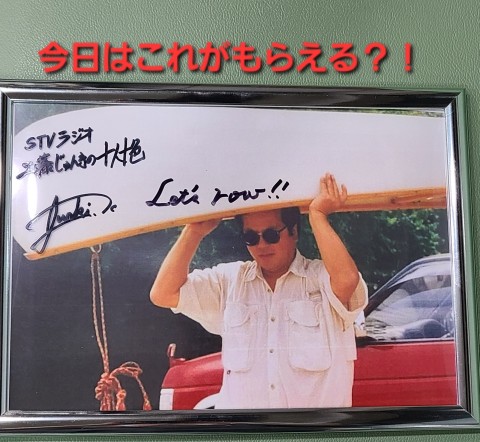 今日はこれがもらえる？！
STVラジオ
工藤じゅんきの十人十色
Let's row!!